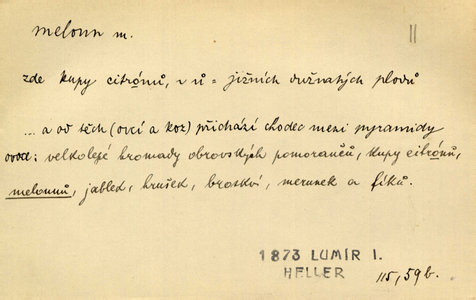 meloun m.
II
zde kupy citrónů, v ů = jižních dužnatých plodů
... a od těch (ovcí a koz) přichází chodec mezi pyramidy
ovoce: velkolepé hromady obrovských pomorančů, kupy citrónů,
melounů, jablek, hrušek, broskví, merunek a fíků.
1873 LUMÍR I.
HELLER
115, 59b.